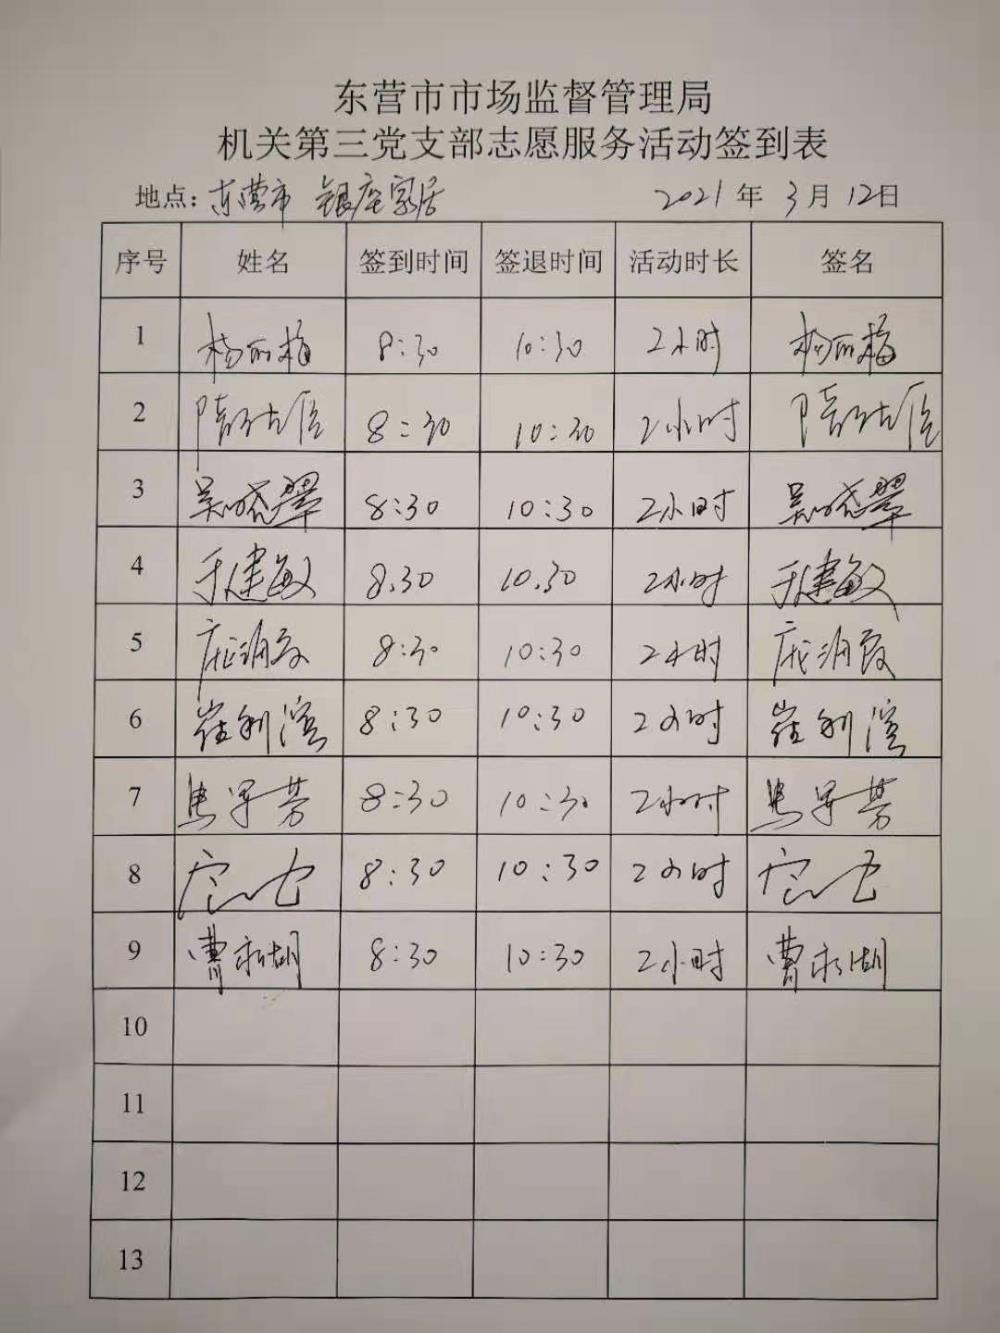 东营市市场监督管理局
机关第三党支部志愿服务活动签到表
地点：东营市 银座家居 2021年3月12日
序号 姓名 签到时间 签退时间 活动时长 签名
1 杨丽梅 8:30 10:30 2小时 杨丽梅
2 8:30 10:30 2小时
3 吴晓翠 8:30 10:30 2小时 吴晓翠
4 于建敏 8.30 10.30 2小时 于建敏
5 8:30 10:30 2小时
6 崔利滨 8:30 10:30 2小时 崔利滨
7 8:30 10:30 2小时
8 8:30 10:30 2小时
9 曹永湖 8:30 10:30 2小时 曹永湖
10
11
12
13